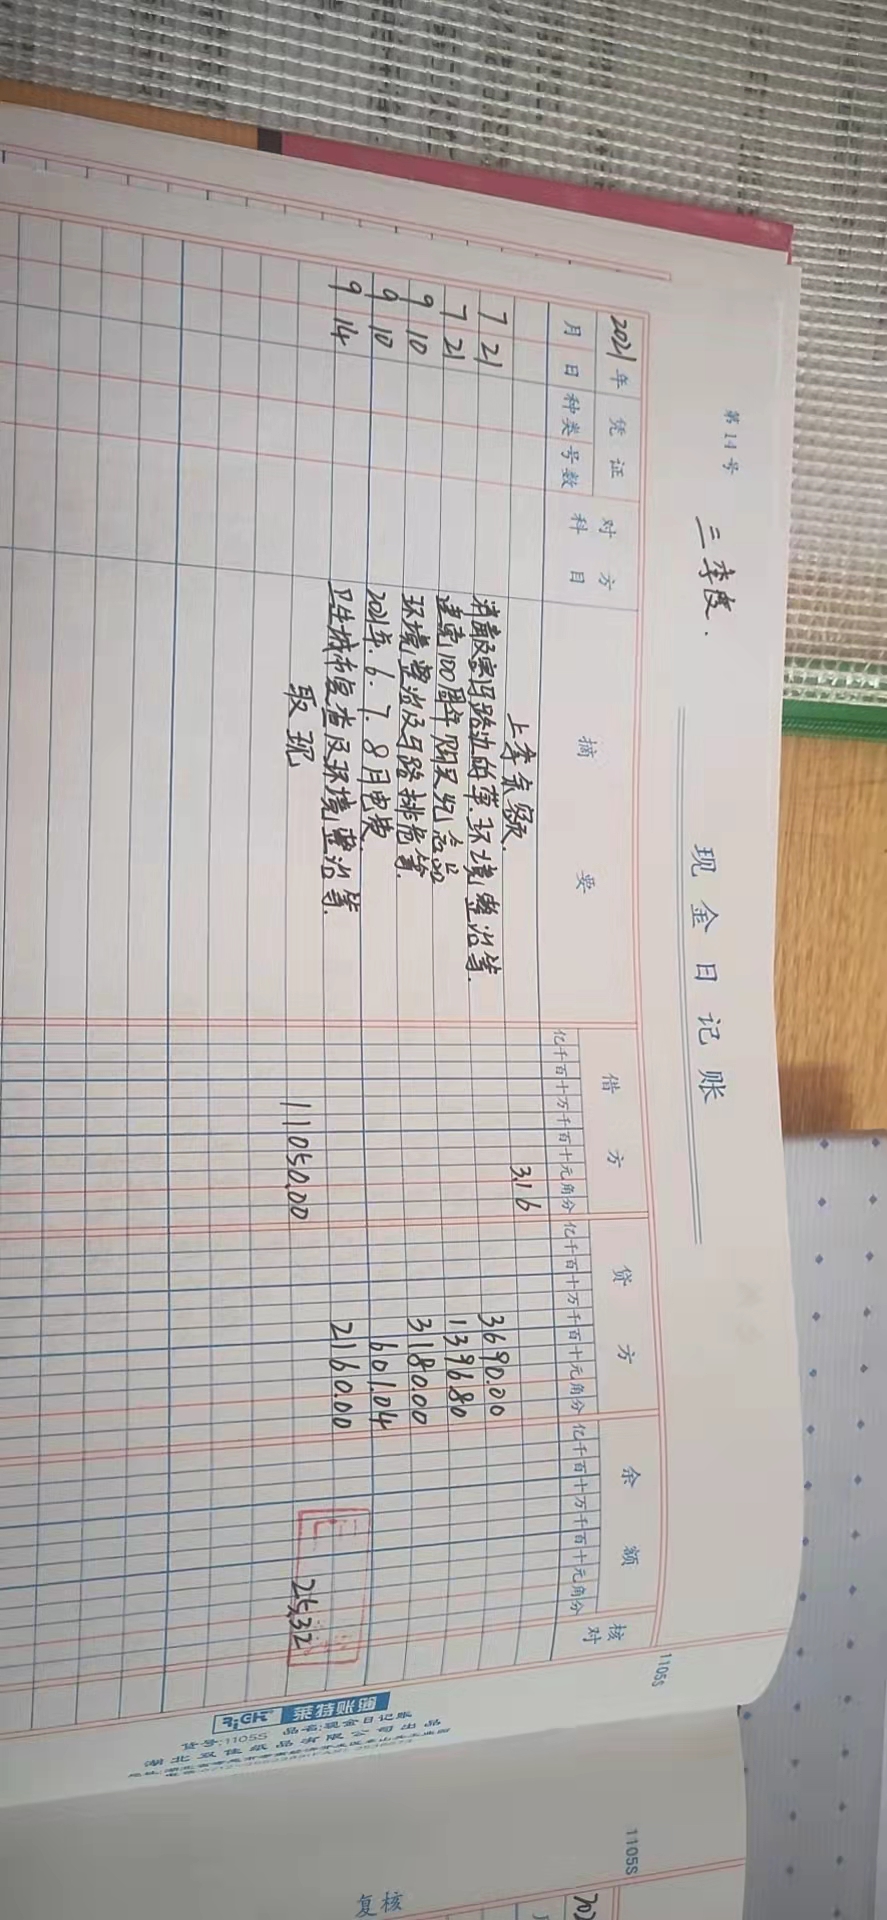 第14号
三季度.
现金日记账
1105S
2021年 凭证 对方科目 摘要 借方 贷方 余额 核对
月 日 种类 号数 亿千百十万千百十元角分 亿千百十万千百十元角分 亿千百十万千百十元角分
上季余额. 3.16
7 21 消毒及宝马路边的草.环境整治等. 3690.00
7 21 建党100周年购买纪念品 1396.80
9 10 环境整治及马路排危等. 3180.00
9 10 2021年.6.7.8月电费 601.04
9 14 卫生城市复查及环境整治等. 2160.00
取现 11050.00 25.32
莱特账簿
货号:1105S 品名:现金日记账
湖北双佳纸品有限公司出品
1105S
复核